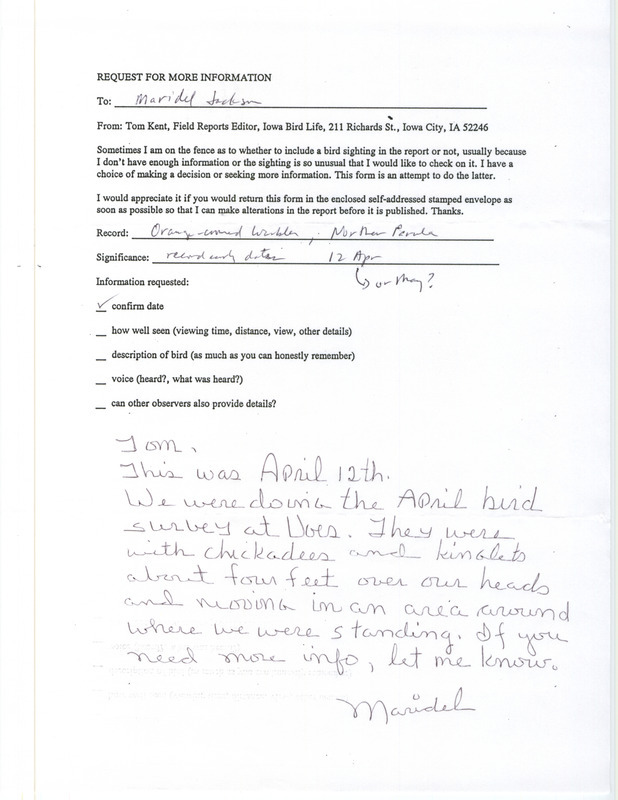 REQUEST FOR MORE INFORMATION
To: Maridel Jackson
From: Tom Kent, Field Reports Editor, Iowa Bird Life, 211 Richards St., Iowa City, IA 52246
Sometimes I am on the fence as to whether to include a bird sighting in the report or not, usually because
I don't have enough information or the sighting is so unusual that I would like to check on it. I have a
choice of making a decision or seeking more information. This form is an attempt to do the latter.
I would appreciate it if you would return this form in the enclosed self-addressed stamped envelope as
soon as possible so that I can make alterations in the report before it is published. Thanks.
Record: Orange-crowned Warbler, Northern Parula
Significance: record early dates 12 Apr
↳ or May?
Information requested:
✓ confirm date
__ how well seen (viewing time, distance, view, other details)
__ description of bird (as much as you can honestly remember)
__ voice (heard?, what was heard?)
__ can other observers also provide details?
Tom,
This was April 12th.
We were doing the April bird
survey at Uves. They were
with chickadees and kinglets
about four feet over our heads
and moving in an area around
where we were standing. If you
need more info, let me know.
Maridel